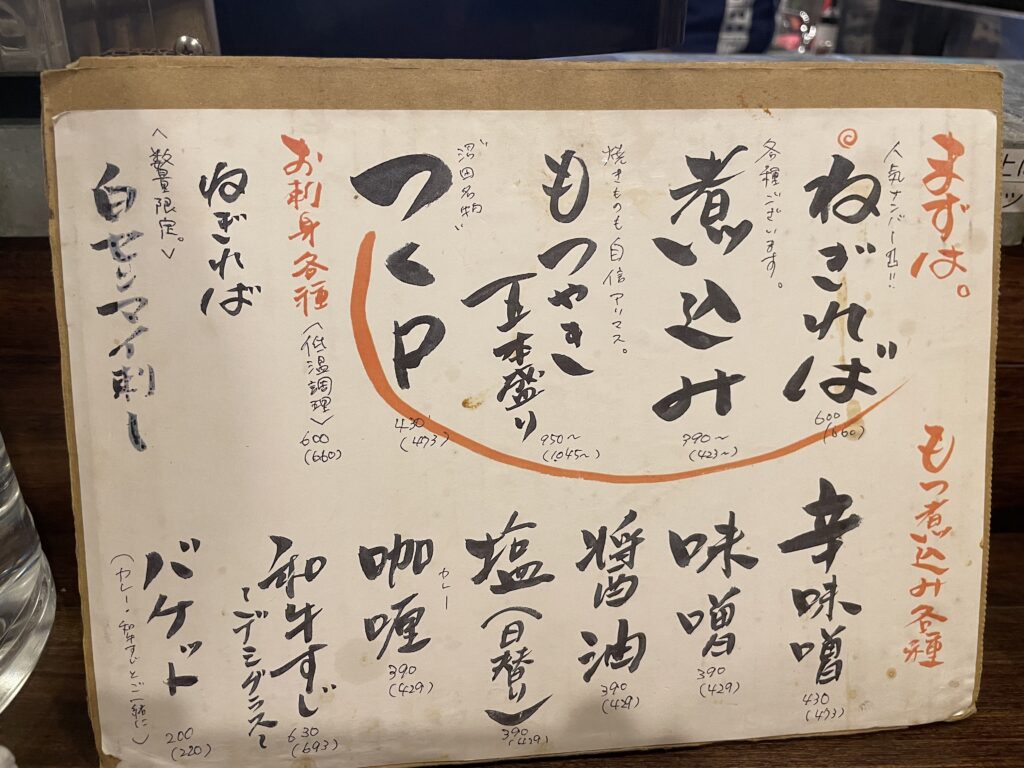 まずは。
人気ナンバー凸!!
ねぎればー
600
(660)
各種ございます。
煮込み
390〜
(423〜)
焼きものも自信アリマス。
もつやき
五本盛り
950〜
(1045〜)
"沼田名物"
つくP
430
(473)
お刺身各種
〈低温調理〉
600
(660)
ねぎれば
〈数量限定。〉
白センマイ刺し
もつ煮込み各種
辛味噌
430
(473)
味噌
390
(429)
醤油
390
(429)
塩(日替り)
390
(429)
カレー
咖喱
390
(429)
和牛すじ
〜デミグラス〜
630
(693)
バケット
(カレー・和牛すじとご一緒に)
200
(220)